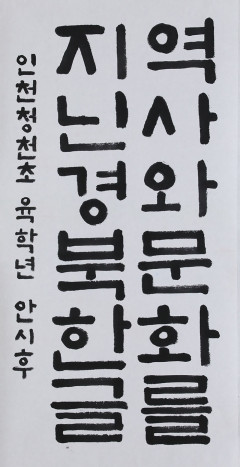 역사와문화를
지닌경북한글
인천청천초 육학년 안시후